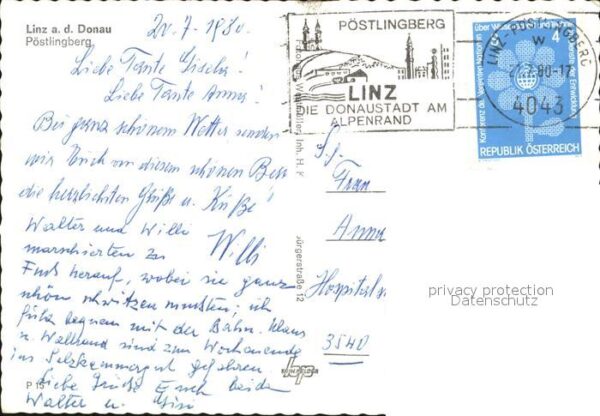 Linz a. d. Donau
Pöstlingberg
20.7.1980.
Liebe Tante Gisela!
Liebe Tante Anna!
Bei ganz schönem Wetter senden
wir Euch von diesem schönen Berg
die herzlichsten Grüße u. Küße
Willi
Walter und Willi
marschierten zu
Fuß herauf, wobei sie ganz
schön schwitzen mussten, ich
fuhr bequem mit der Bahn. Klaus
u. Waltraud sind zum Wochenende
ins Salzkammergut gefahren.
Liebe Grüße Euch beiden
Walter u.
P 15
PÖSTLINGBERG
LINZ
DIE DONAUSTADT AM
ALPENRAND
LINZ-PÖSTLINGBERG
80-17
4043
4
REPUBLIK ÖSTERREICH
Inh. H. K
ürgerstraße 12
Frau
Anna
Hospital
3540
privacy protection
Datenschutz